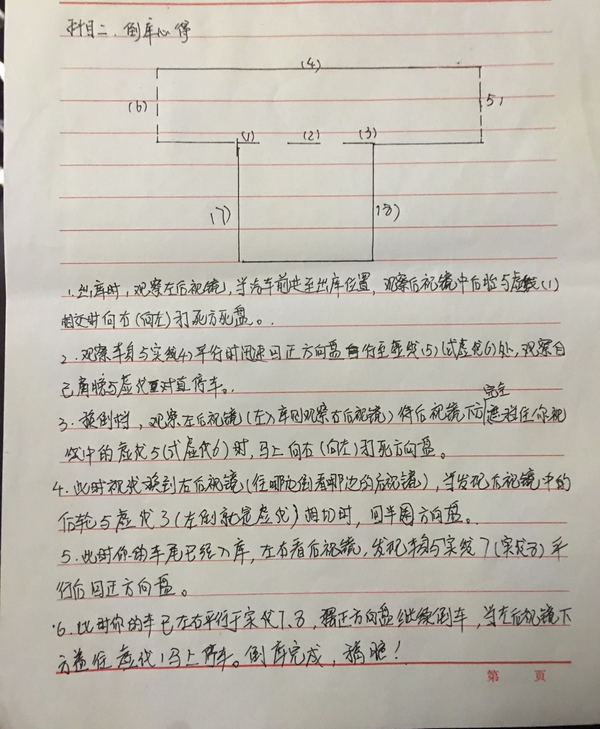 科目二. 倒库心得
(4)
(6)
5)
(1) (2) (3)
17) 18)
1. 出库时, 观察左后视镜, 当汽车前走至出库位置, 观察后视镜中后轮与虚线(1)
相交时向右(向左)打死方死盘。.
2. 观察车身与实线(4)平行时迅速回正方向盘 行至虚线(5)(或虚线6)处, 观察自
己肩膀与虚线 对直停车。.
3. 换倒档, 观察左后视镜(左入库则观察右后视镜)待后视镜下方完全遮程住你视
线中的虚线5(或虚线6)时, 马上向右(向左)打死方向盘。
4. 此时视线换到右后视镜(往哪边倒看哪边的后视镜), 当发现后视镜中的
后轮与虚线3(左倒就是虚线)相切时, 回半圈方向盘。
5. 此时你的车尾已经入库, 左右看后视镜, 发现车身与实线7(实线8)平
行后回正方向盘。
6. 此时你的车已左右平行于实线7.8, 正方向盘继续倒车, 当左后视镜下
方盖住虚线1马上停车。倒库完成, 搞腚!
第 页